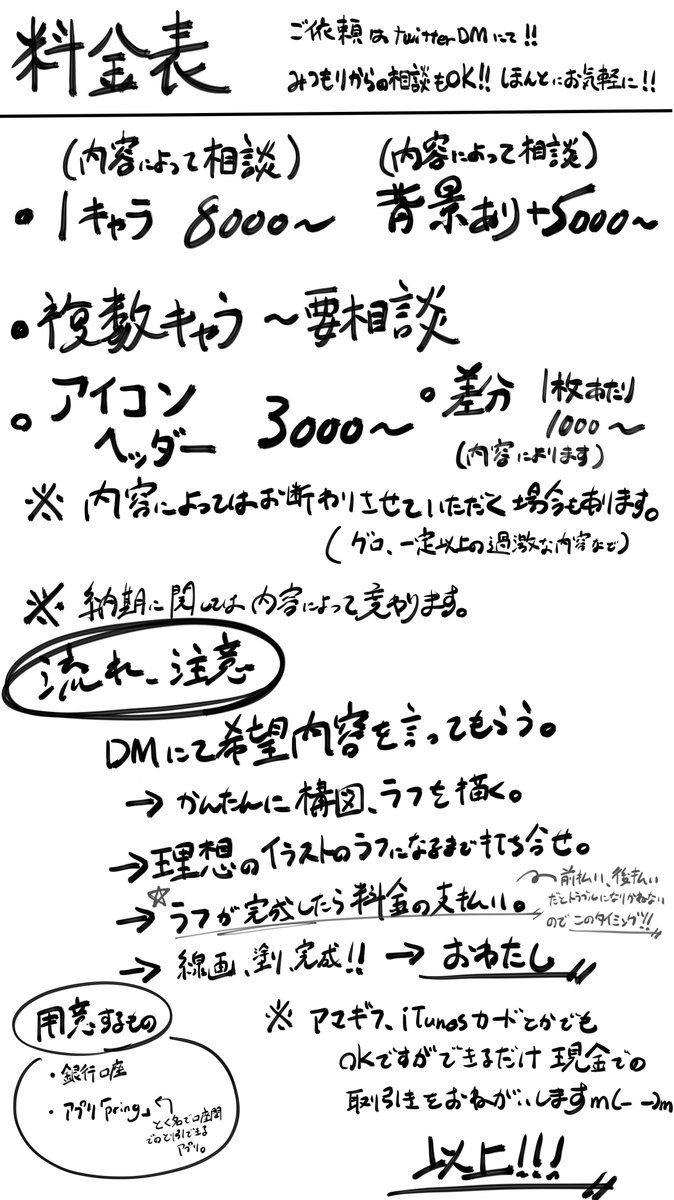 料金表
ご依頼はtwitterDMにて!!
みつもりからの相談もOK!! ほんとにお気軽に!!
(内容によって相談) (内容によって相談)
・1キャラ 8000〜 背景あり+5000〜
・複数キャラ 〜要相談
・アイコン
ヘッダー 3000〜
・差分 1枚あたり
1000〜
(内容によります)
※ 内容によってはお断わりさせていただく場合もあります。
(グロ、一定以上の過激な内容など)
※ 納期に関しては内容によって変わります。
流れ、注意
DMにて希望内容を言ってもらう。
→ かんたんに構図、ラフを描く。
→理想のイラストのラフになるまで打ち合せ。
→☆ラフが完成したら料金の支払い。
前払い、後払い
だとトラブルになりかねない
のでこのタイミング!!
→ 線画、塗り、完成!! → おわたし
用意するもの
・銀行口座
・アプリ「pring」←
とく名で口座間
でのとり引できる
アプリ。
※ アマギフ、iTunesカードとかでも
OKですができるだけ現金での
取引きをおねがいしますm(- -)m
以上!!!